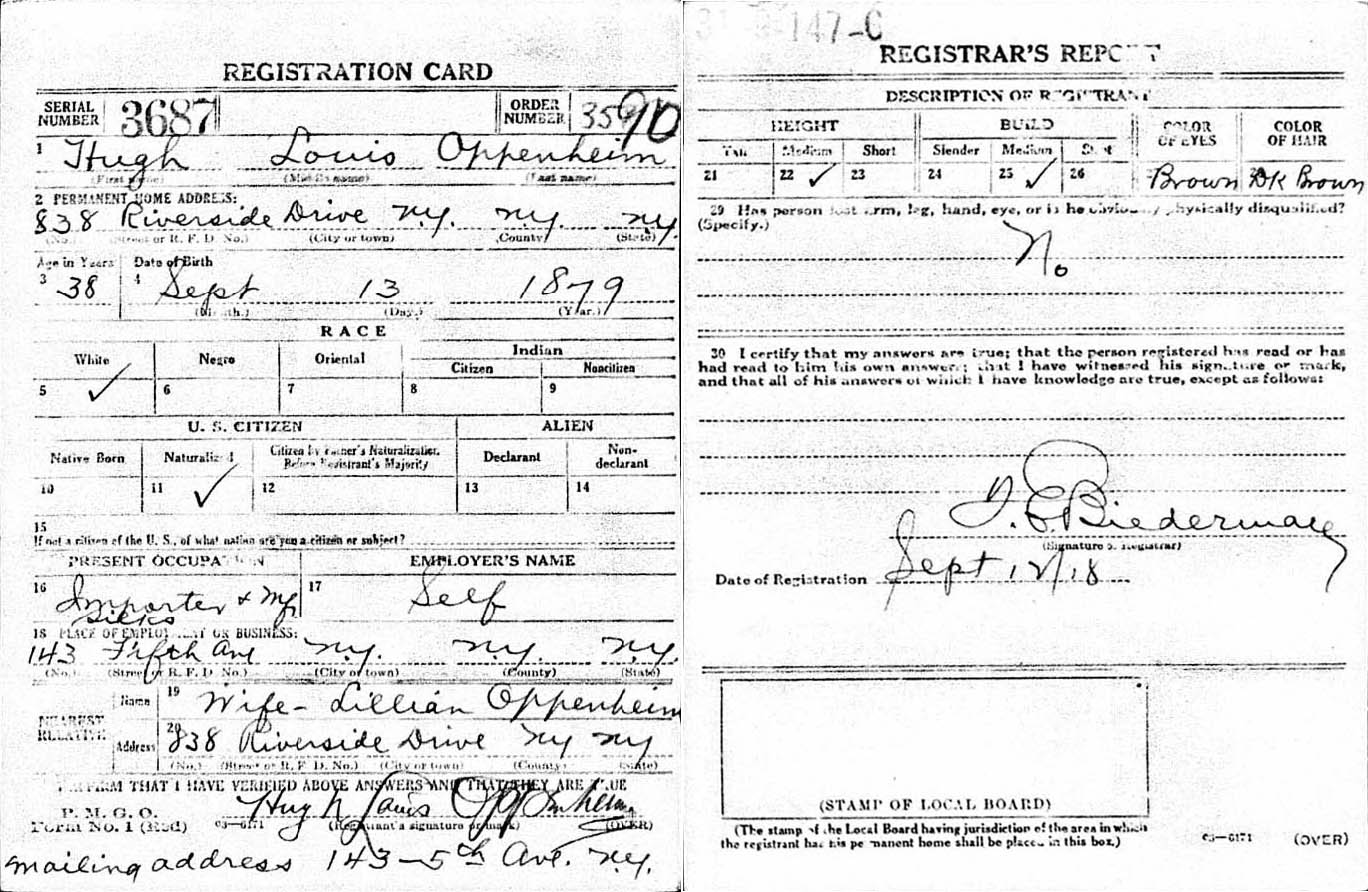 REGISTRATION CARD
SERIAL NUMBER 3687 ORDER NUMBER 3590
1 Hugh Louis Oppenheim
(First name) (Middle name) (Last name)
2 PERMANENT HOME ADDRESS:
838 Riverside Drive N.Y. N.Y. N.Y.
(No.) (Street or R. F. D. No.) (City or town) (County) (State)
Age in Years Date of Birth
3 38 4 Sept 13 1879
(Month.) (Day.) (Year.)
RACE
White Negro Oriental Indian
Citizen Noncitizen
5 ✓ 6 7 8 9
U. S. CITIZEN ALIEN
Native Born Naturalized Citizen by Father's Naturalization Before Registrant's Majority Declarant Non-declarant
10 11 ✓ 12 13 14
15
If not a citizen of the U. S., of what nation are you a citizen or subject?
PRESENT OCCUPATION EMPLOYER'S NAME
16 Importer & Mfg Silks 17 Self
18 PLACE OF EMPLOYMENT OR BUSINESS:
143 Fifth Ave N.Y. N.Y. N.Y.
(No.) (Street or R. F. D. No.) (City or town) (County) (State)
NEAREST RELATIVE
Name 19 Wife - Lillian Oppenheim
Address 20 838 Riverside Drive NY NY
(No.) (Street or R. F. D. No.) (City or town) (County) (State)
I AFFIRM THAT I HAVE VERIFIED ABOVE ANSWERS AND THAT THEY ARE TRUE
P. M. G. O.
Form No. 1 (Red) 03—6171 Hugh Louis Oppenheim
(Registrant's signature or mark) (OVER)
mailing address 143 - 5th Ave. N.Y.
31-9-147-C
REGISTRAR'S REPORT
DESCRIPTION OF REGISTRANT
HEIGHT BUILD COLOR OF EYES COLOR OF HAIR
Tall Medium Short Slender Medium Stout
21 22 ✓ 23 24 25 ✓ 26 Brown DK Brown
29 Has person lost arm, leg, hand, eye, or is he obviously physically disqualified?
(Specify.)
No
30 I certify that my answers are true; that the person registered has read or has
had read to him his own answers; that I have witnessed his signature or mark,
and that all of his answers of which I have knowledge are true, except as follows:
Biederman
(Signature of Registrar)
Date of Registration Sept 12/18
(STAMP OF LOCAL BOARD)
(The stamp of the Local Board having jurisdiction of the area in which
the registrant has his permanent home shall be placed in this box.)
03—6171 (OVER)